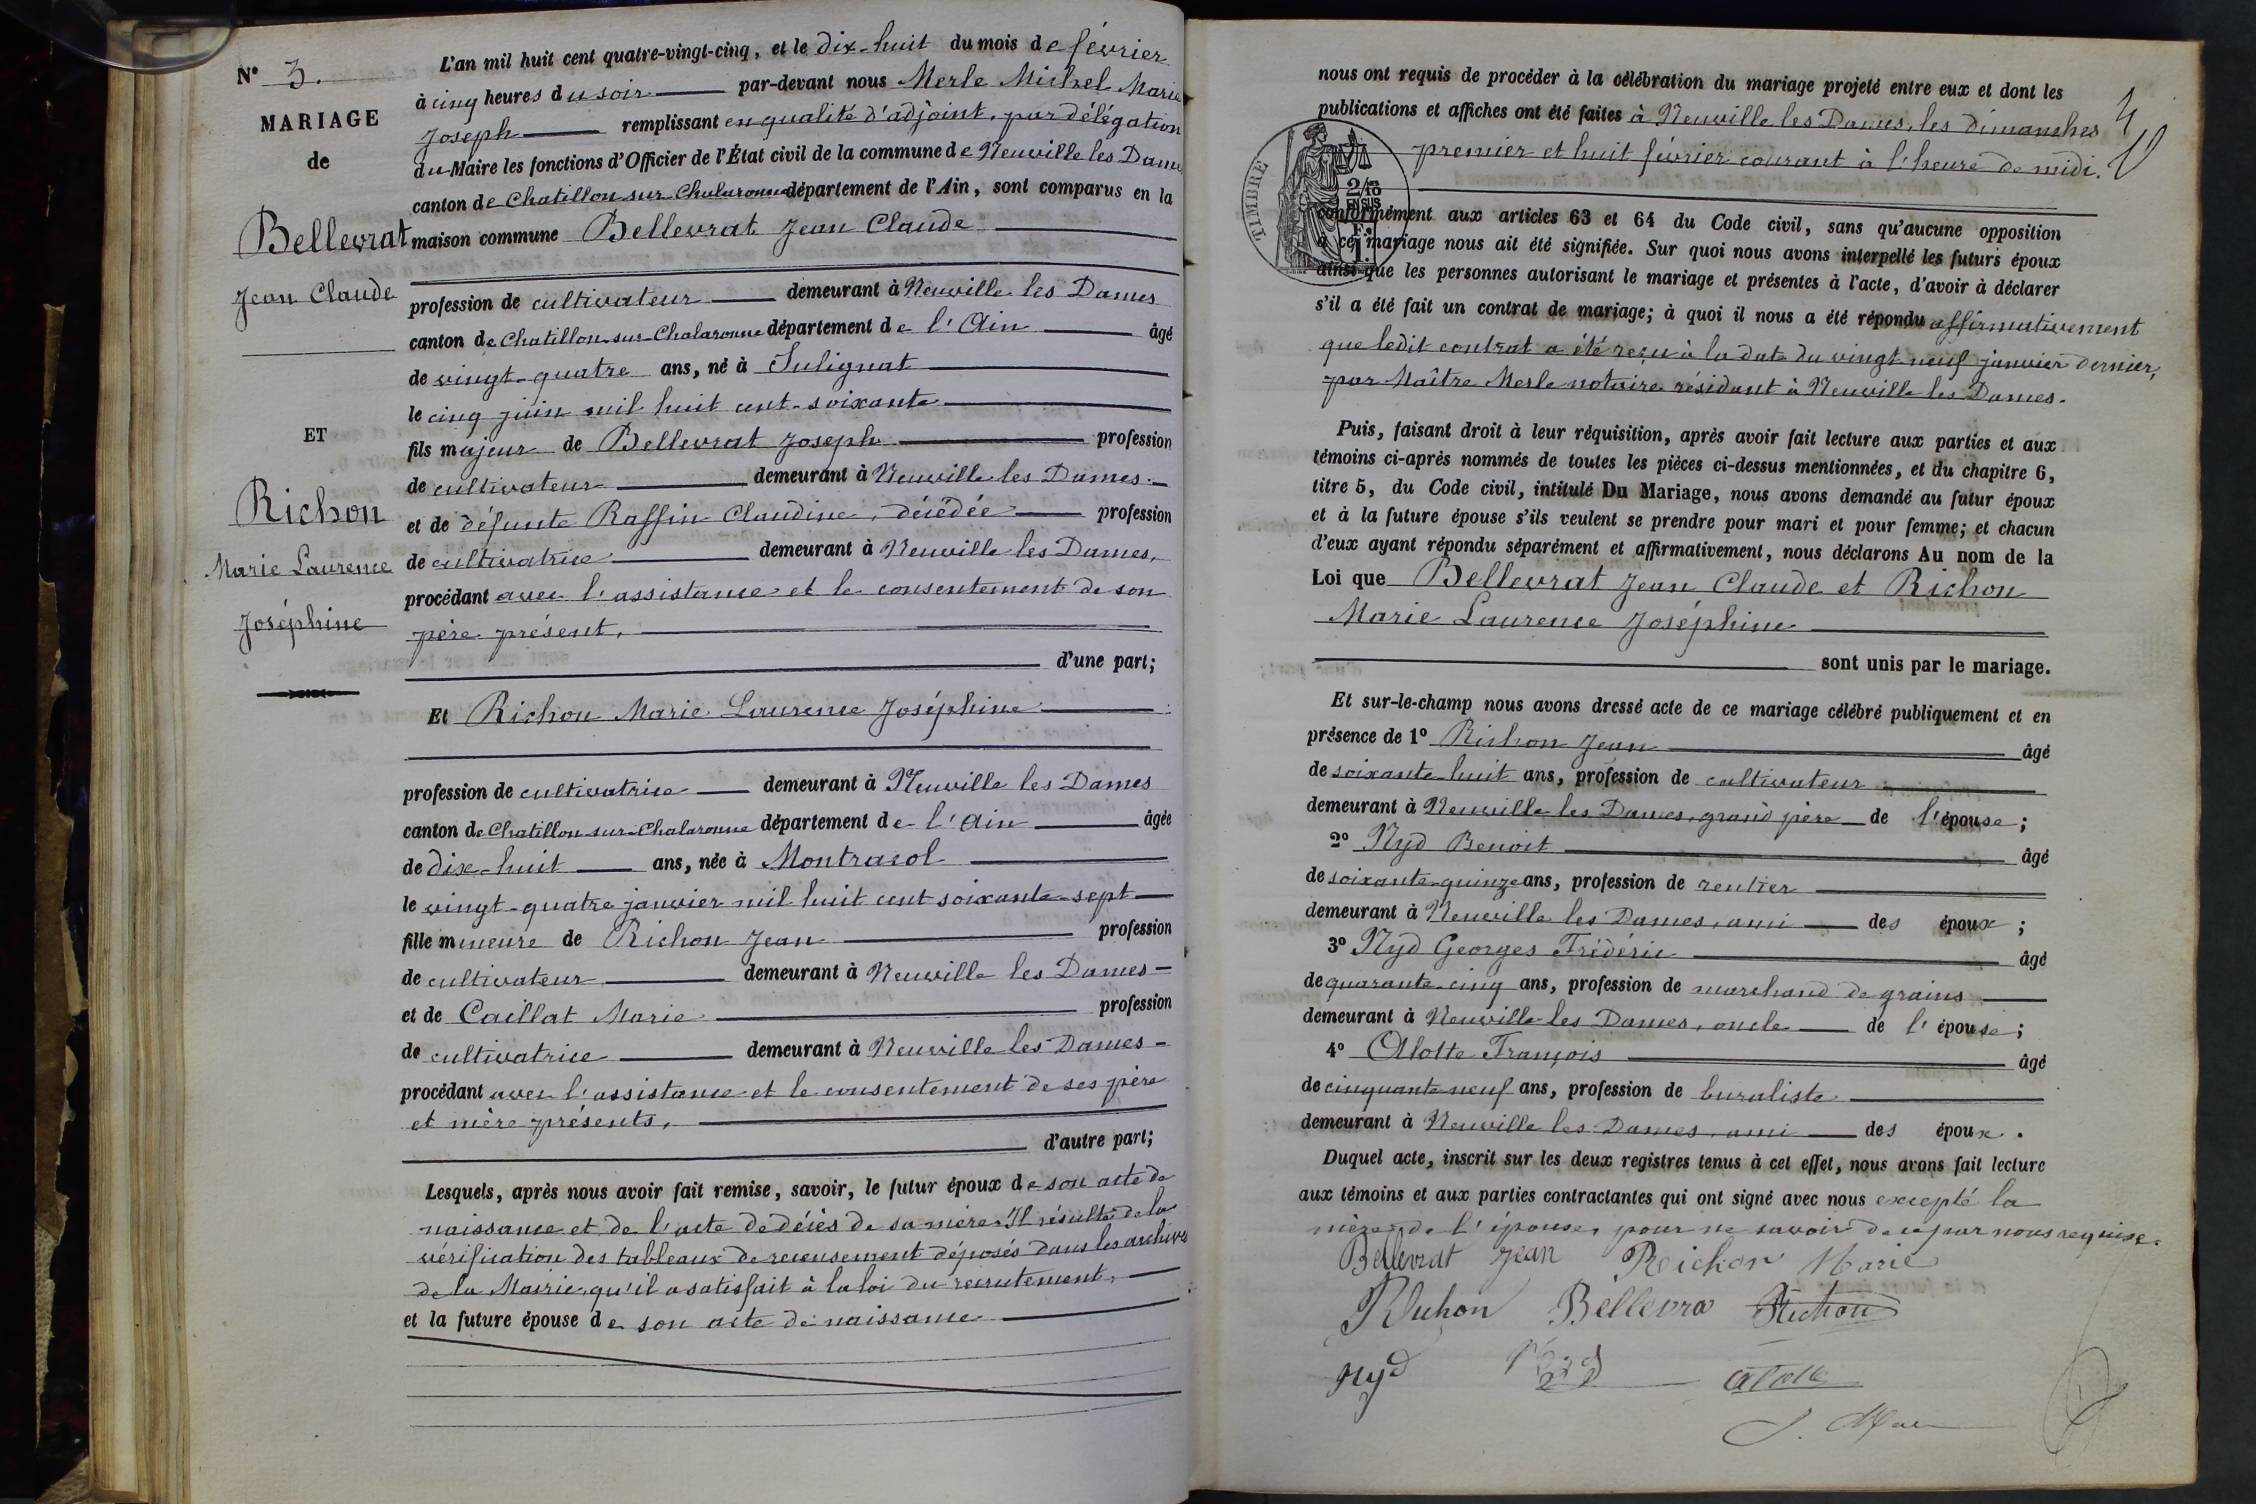 N° 3.
MARIAGE
de
Bellevrat
Jean Claude
ET
Richon
Marie Laurence
Joséphine
L'an mil huit cent quatre-vingt-cinq, et le dix-huit du mois de février
à cinq heures du soir par-devant nous Merle Michel Marie
Joseph remplissant en qualité d'adjoint, par délégation
du Maire les fonctions d'Officier de l'État civil de la commune de Neuville les Dames
canton de Chatillon-sur-Chalaronne département de l'Ain, sont comparus en la
maison commune Bellevrat Jean Claude
profession de cultivateur demeurant à Neuville les Dames
canton de Chatillon-sur-Chalaronne département de l'Ain âgé
de vingt-quatre ans, né à Sulignat
le cinq juin mil huit cent-soixante
fils majeur de Bellevrat Joseph profession
de cultivateur demeurant à Neuville les Dames.
et de défunte Raffin Claudine, décédée profession
de cultivatrice demeurant à Neuville les Dames,
procédant avec l'assistance et le consentement de son
père présent,
d'une part;
Et Richon Marie Laurence Joséphine
profession de cultivatrice demeurant à Neuville les Dames
canton de Chatillon-sur-Chalaronne département de l'Ain âgée
de dix-huit ans, née à Montracol
le vingt-quatre janvier mil huit cent soixante-sept
fille mineure de Richon Jean profession
de cultivateur demeurant à Neuville les Dames
et de Caillat Marie profession
de cultivatrice demeurant à Neuville les Dames
procédant avec l'assistance et le consentement de ses père
et mère présents,
d'autre part;
Lesquels, après nous avoir fait remise, savoir, le futur époux de son acte de
naissance et de l'acte de décès de sa mère. Il résulte de la
vérification des tableaux de recensement déposés dans les archives
de la Mairie, qu'il a satisfait à la loi du recrutement,
et la future épouse de son acte de naissance
nous ont requis de procéder à la célébration du mariage projeté entre eux et dont les
publications et affiches ont été faites à Neuville les Dames, les dimanches
premier et huit février courant à l'heure de midi.
TIMBRE
2/10
EN SUS
F.
1.
conformément aux articles 63 et 64 du Code civil, sans qu'aucune opposition
à ce mariage nous ait été signifiée. Sur quoi nous avons interpellé les futurs époux
ainsi que les personnes autorisant le mariage et présentes à l'acte, d'avoir à déclarer
s'il a été fait un contrat de mariage; à quoi il nous a été répondu affirmativement
que ledit contrat a été reçu à la date du vingt neuf janvier dernier,
par Maître Merle notaire résidant à Neuville les Dames.
Puis, faisant droit à leur réquisition, après avoir fait lecture aux parties et aux
témoins ci-après nommés de toutes les pièces ci-dessus mentionnées, et du chapitre 6,
titre 5, du Code civil, intitulé Du Mariage, nous avons demandé au futur époux
et à la future épouse s'ils veulent se prendre pour mari et pour femme; et chacun
d'eux ayant répondu séparément et affirmativement, nous déclarons Au nom de la
Loi que Bellevrat Jean Claude et Richon
Marie Laurence Joséphine
sont unis par le mariage.
Et sur-le-champ nous avons dressé acte de ce mariage célébré publiquement et en
présence de 1° Richon Jean âgé
de soixante-huit ans, profession de cultivateur
demeurant à Neuville les Dames, grand père de l'épouse;
2° Nyd Benoit âgé
de soixante-quinze ans, profession de rentier
demeurant à Neuville les Dames, ami des époux;
3° Nyd Georges Frédéric âgé
de quarante-cinq ans, profession de marchand de grains
demeurant à Neuville les Dames, oncle de l'épouse;
4° Alotte François âgé
de cinquante neuf ans, profession de buraliste
demeurant à Neuville les Dames, ami des époux.
Duquel acte, inscrit sur les deux registres tenus à cet effet, nous avons fait lecture
aux témoins et aux parties contractantes qui ont signé avec nous excepté la
mère de l'épouse, pour ne savoir de ce par nous requise.
Bellevrat Jean Richon Marie
Richon Bellevra Richon
Nyd Alotte